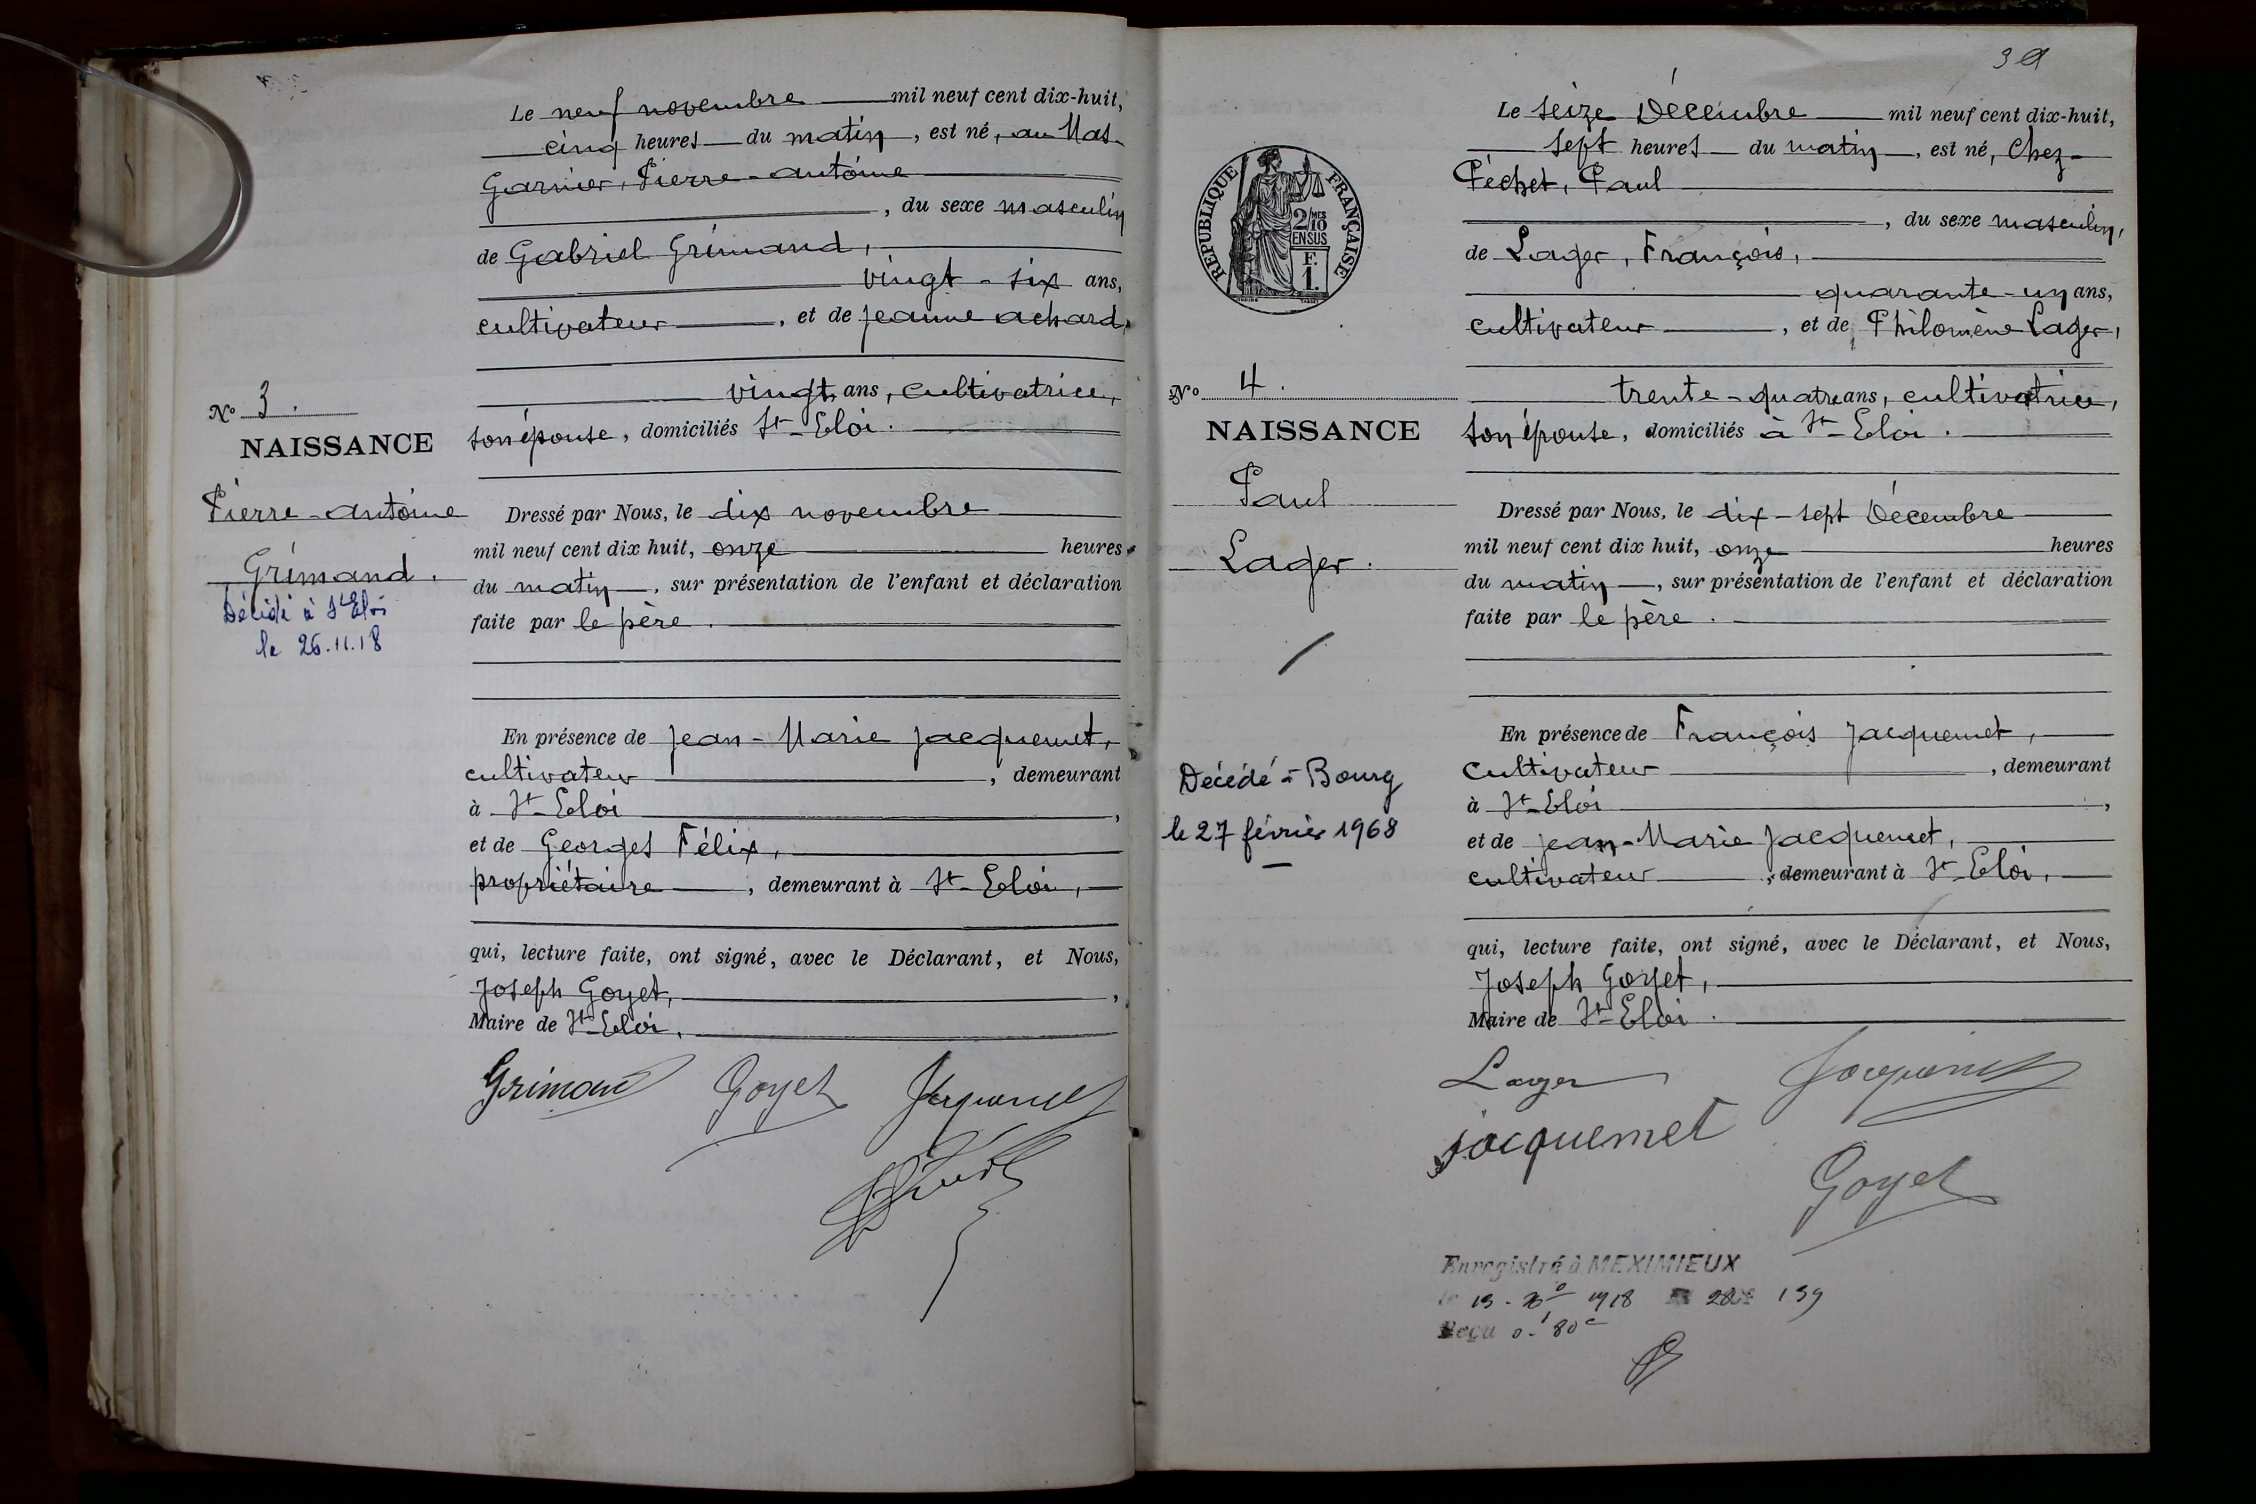 Le neuf novembre mil neuf cent dix-huit,
cinq heures du matin, est né, au Mas-
Garnier, Pierre-antoine
, du sexe masculin
de Gabriel Grimand,
vingt-six ans,
cultivateur, et de jeanne achard,
vingt ans, cultivatrice,
son épouse, domiciliés St-Eloi.
No 3.
NAISSANCE
Pierre-antoine
Grimand.
Décédé à St Eloi
le 26.11.18
Dressé par Nous, le dix novembre
mil neuf cent dix huit, onze heures
du matin, sur présentation de l'enfant et déclaration
faite par le père.
En présence de jean-Marie jacquemet,
cultivateur, demeurant
à St-Eloi,
et de Georges Félix,
propriétaire, demeurant à St-Eloi,
qui, lecture faite, ont signé, avec le Déclarant, et Nous,
Joseph Goyet,
Maire de St-Eloi.
Grimand Goyet Jacquemet
39
RÉPUBLIQUE FRANÇAISE
2/10 MES
EN SUS
F.
1.
Le seize Décembre mil neuf cent dix-huit,
sept heures du matin, est né, Chez-
Péchet, Paul
, du sexe masculin,
de Lager, François,
quarante-un ans,
cultivateur, et de Philomène Lager,
trente-quatre ans, cultivatrice,
son épouse, domiciliés à St-Eloi.
No 4.
NAISSANCE
Paul
Lager.
Décédé à Bourg
le 27 février 1968
Dressé par Nous, le dix-sept Décembre
mil neuf cent dix huit, onze heures
du matin, sur présentation de l'enfant et déclaration
faite par le père.
En présence de François jacquemet,
cultivateur, demeurant
à St-Eloi,
et de jean-Marie jacquemet,
cultivateur, demeurant à St-Eloi,
qui, lecture faite, ont signé, avec le Déclarant, et Nous,
Joseph Goyet,
Maire de St-Eloi.
Lager Jacquemet
jacquemet
Goyet
Enregistré à MEXIMIEUX
1918
Reçu 0-80c